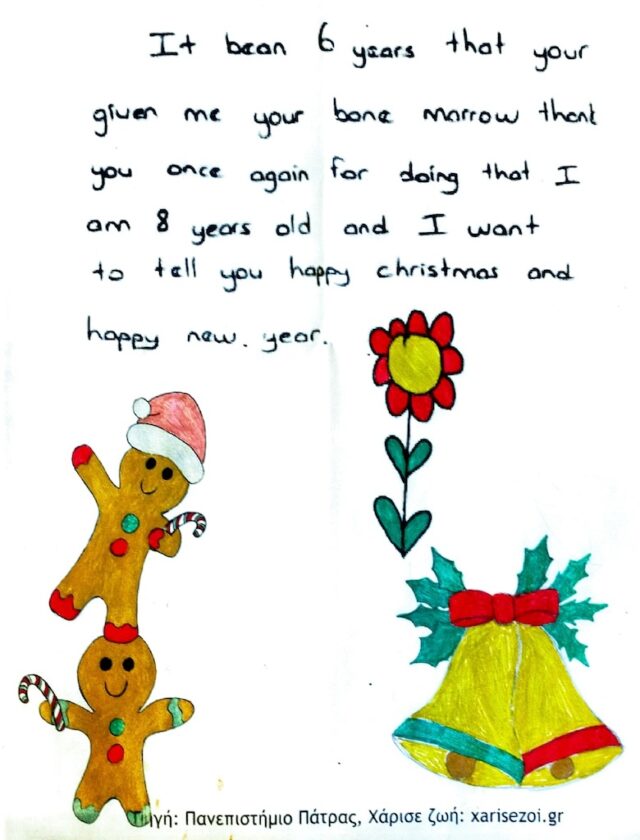 It bean 6 years that your
given me your bone marrow thank
you once again for doing that I
am 8 years old and I want
to tell you happy christmas and
happy new. year.
Πηγή: Πανεπιστήμιο Πάτρας, Χάρισε ζωή: xarisezoi.gr